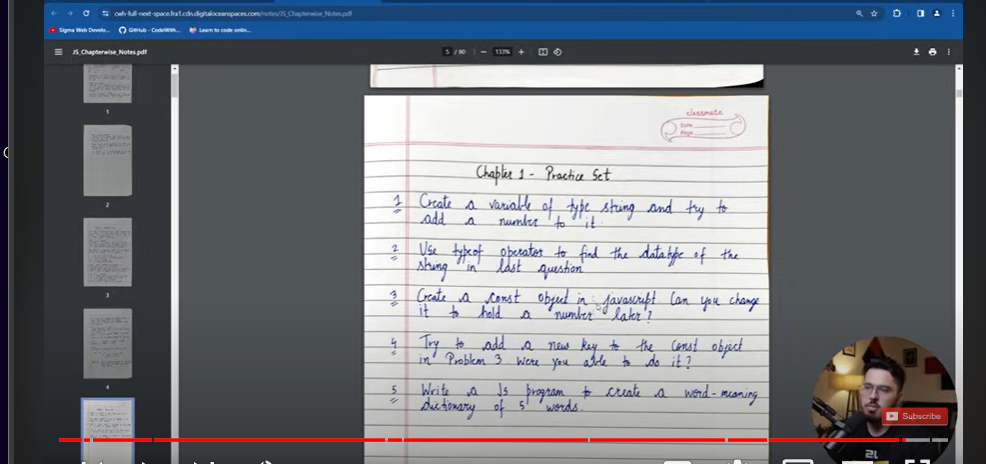 cwh-full-next-space.fra1.cdn.digitaloceanspaces.com/notes/JS_Chapterwise_Notes.pdf
Sigma Web Develo... GitHub - CodeWith... Learn to code onlin...
JS_Chapterwise_Notes.pdf 5 / 80 133%
1
2
3
4
classmate
Date
Page
Chapter 1 - Practice Set
1 Create a variable of type string and try to
add a number to it.
2 Use typeof operator to find the datatype of the
string in last question
3 Create a const object in javascript. Can you change
it to hold a number later?
4 Try to add a new key to the const object
in Problem 3 Were you able to do it?
5 Write a JS program to create a word-meaning
dictionary of 5 words.
Subscribe